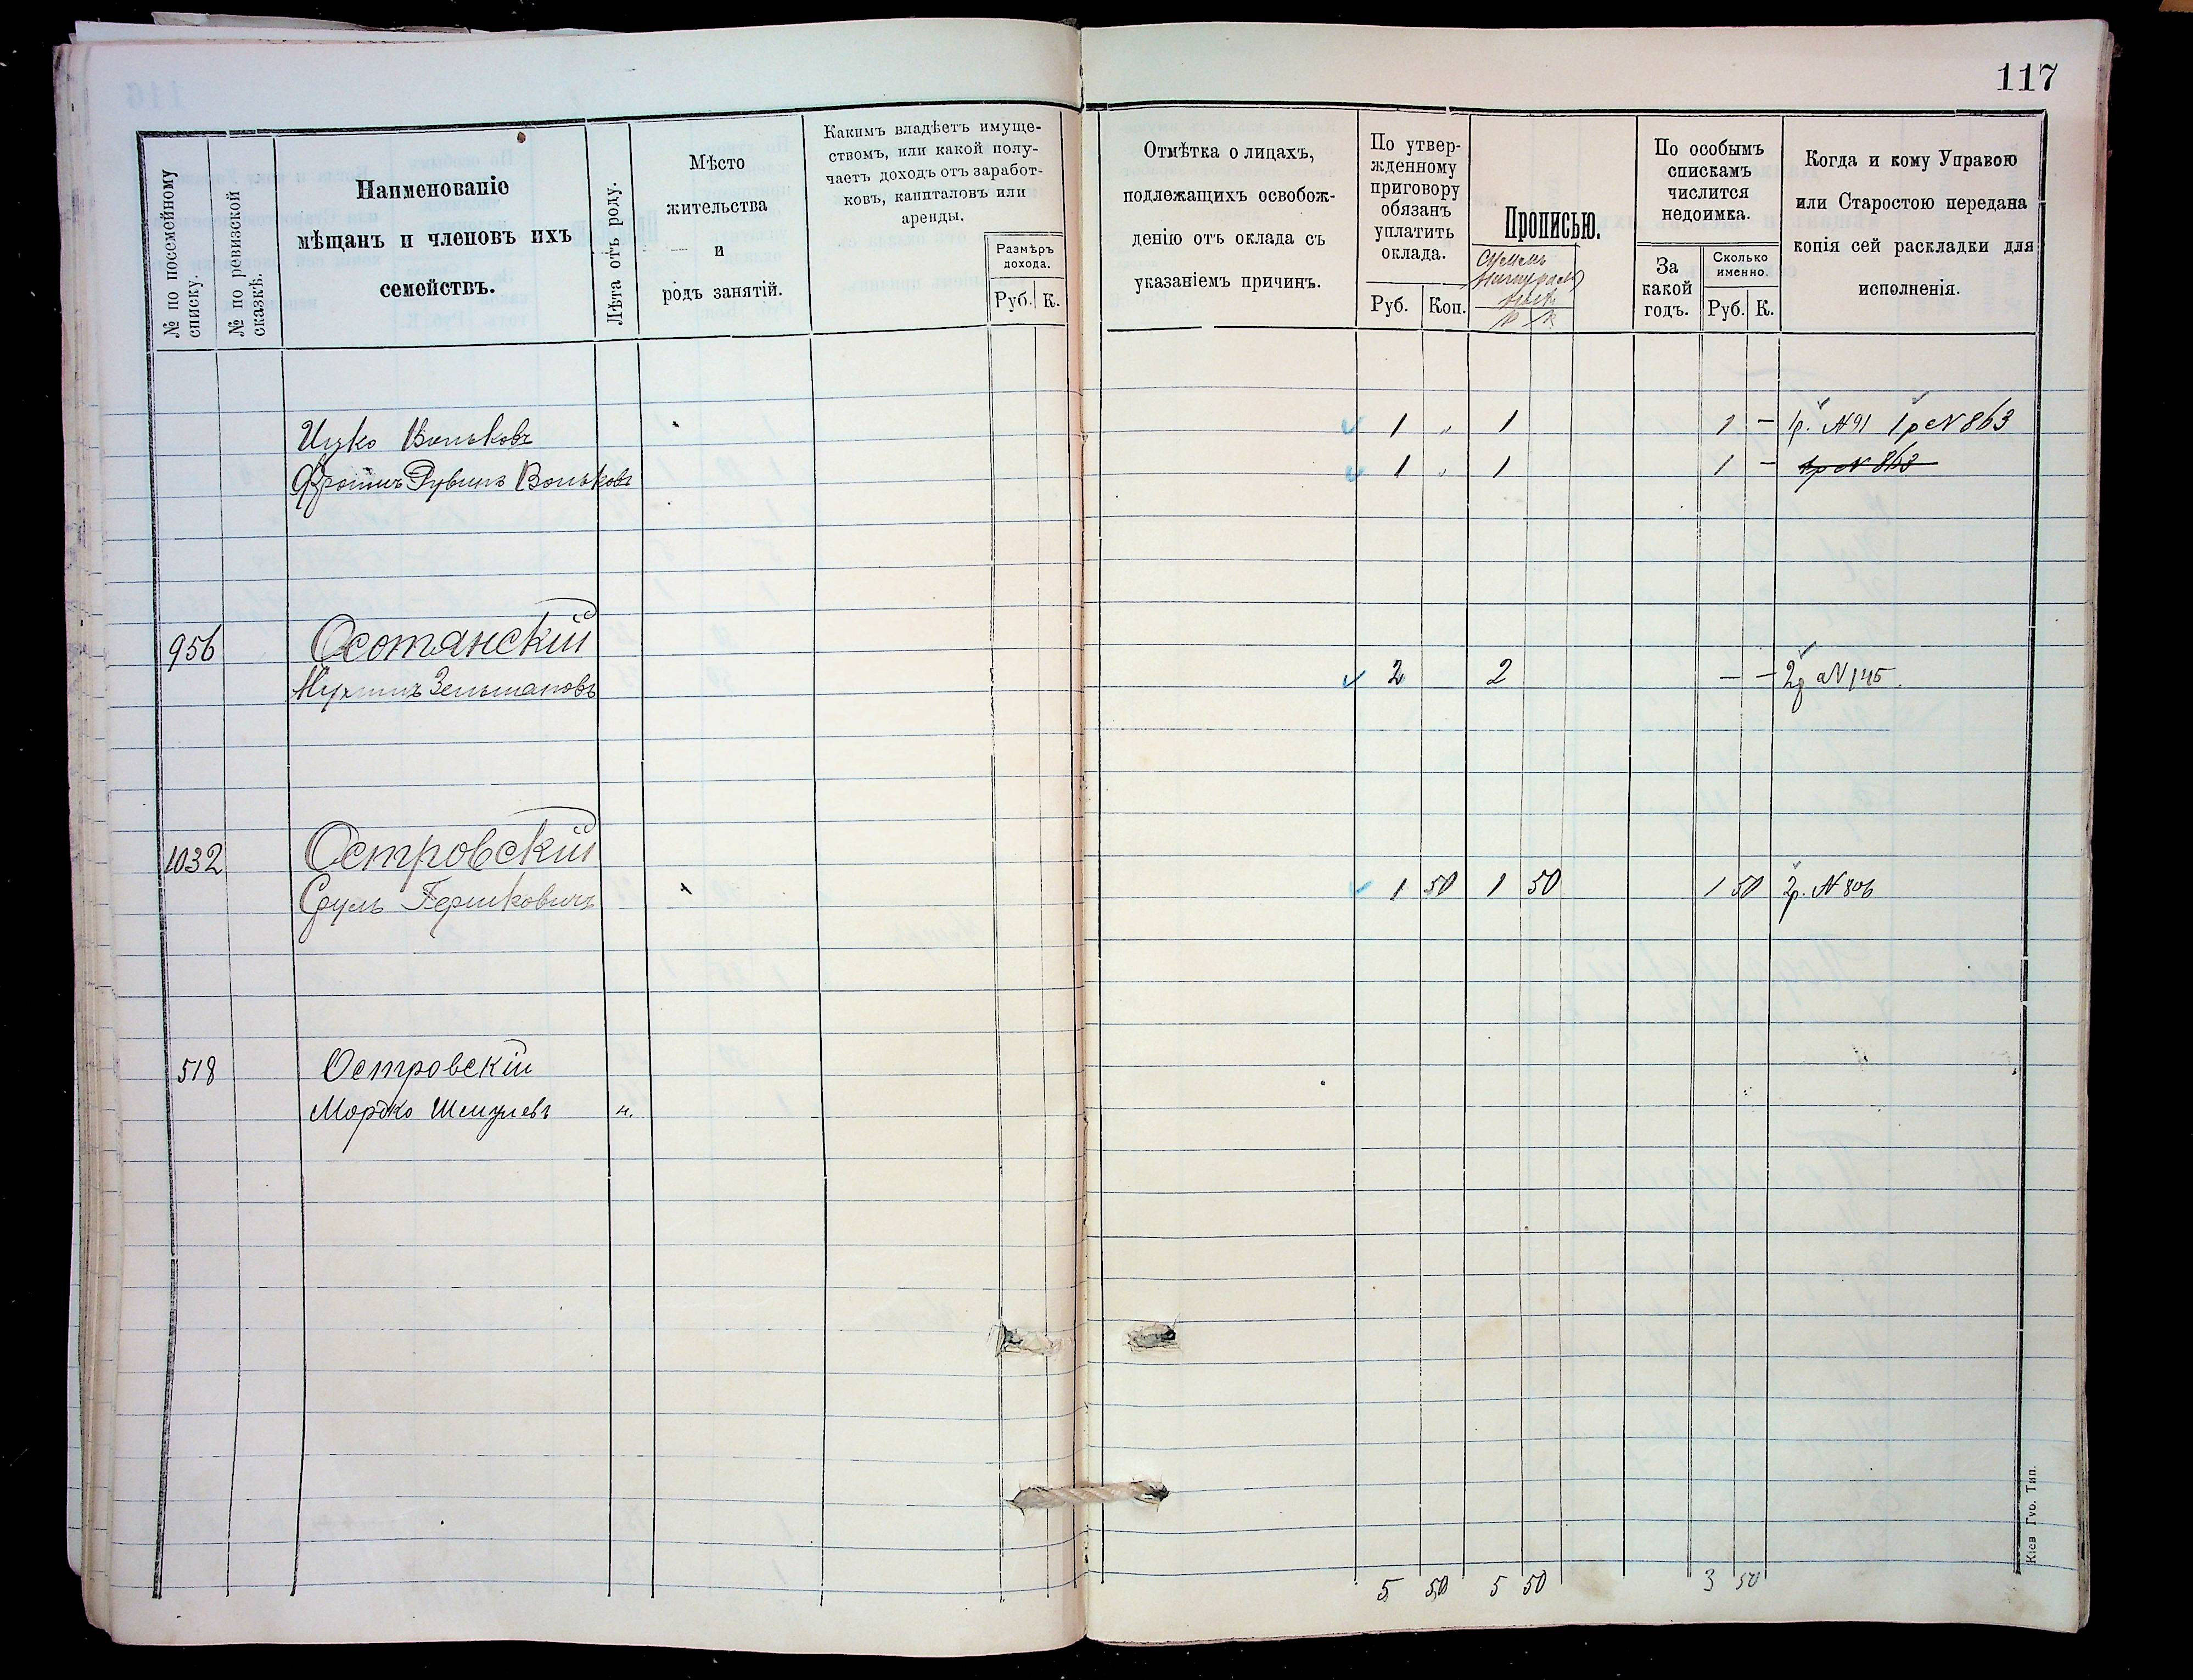 117
№ по посемейному списку.
№ по ревизской сказкѣ.
Наименованіе
мѣщанъ и членовъ ихъ
семействъ.
Лѣта отъ роду.
Мѣсто
жительства
и
родъ занятій.
Какимъ владѣетъ имуще-
ствомъ, или какой полу-
чаетъ доходъ отъ заработ-
ковъ, капиталовъ или
аренды.
Размѣръ
дохода.
Руб. К.
Отмѣтка о лицахъ,
подлежащихъ освобож-
денію отъ оклада съ
указаніемъ причинъ.
По утвер-
жденному
приговору
обязанъ
уплатить
оклада.
Руб. Коп.
Прописью.
р к
По особымъ
спискамъ
числится
недоимка.
За
какой
годъ.
Сколько
именно.
Руб. К.
Когда и кому Управою
или Старостою передана
копія сей раскладки для
исполненія.
Ицко Воньковъ 1 " 1 1 — 1р. №91 1р №863
Рувинъ Воньковъ 1 " 1 1 — 1р №863
956 Осотянскій
Зельмановъ 2 2 — — 2р №145.
1032 Островскій
Сруль Гершковичъ 1 50 1 50 1 50 2р. №806
518 Островскій
Мордко Шмулевъ н.
5 50 5 50 3 50
Кіев Губ. Тип.